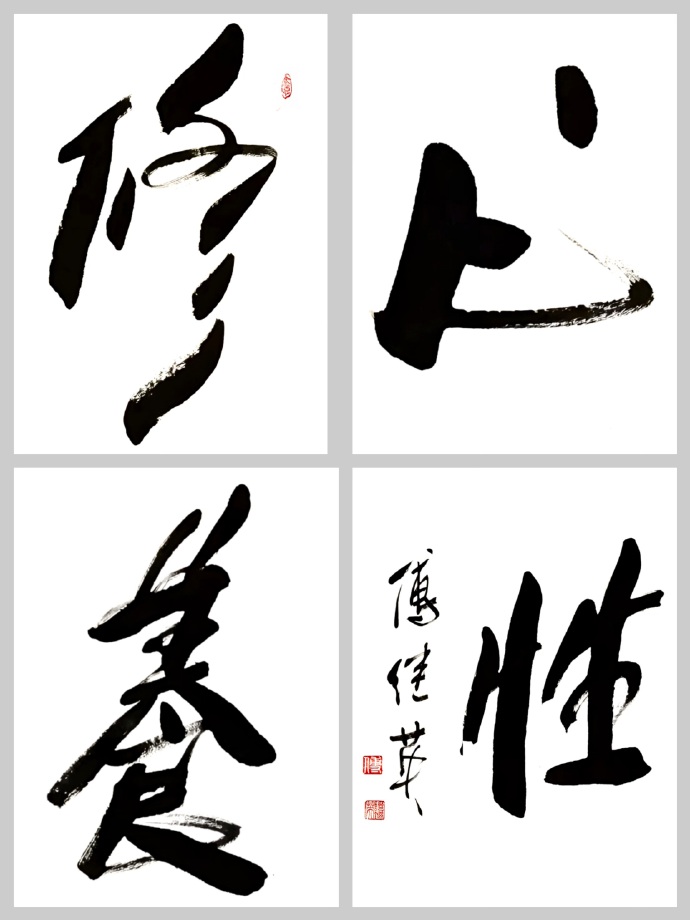 修
心
養
性
傅佳英